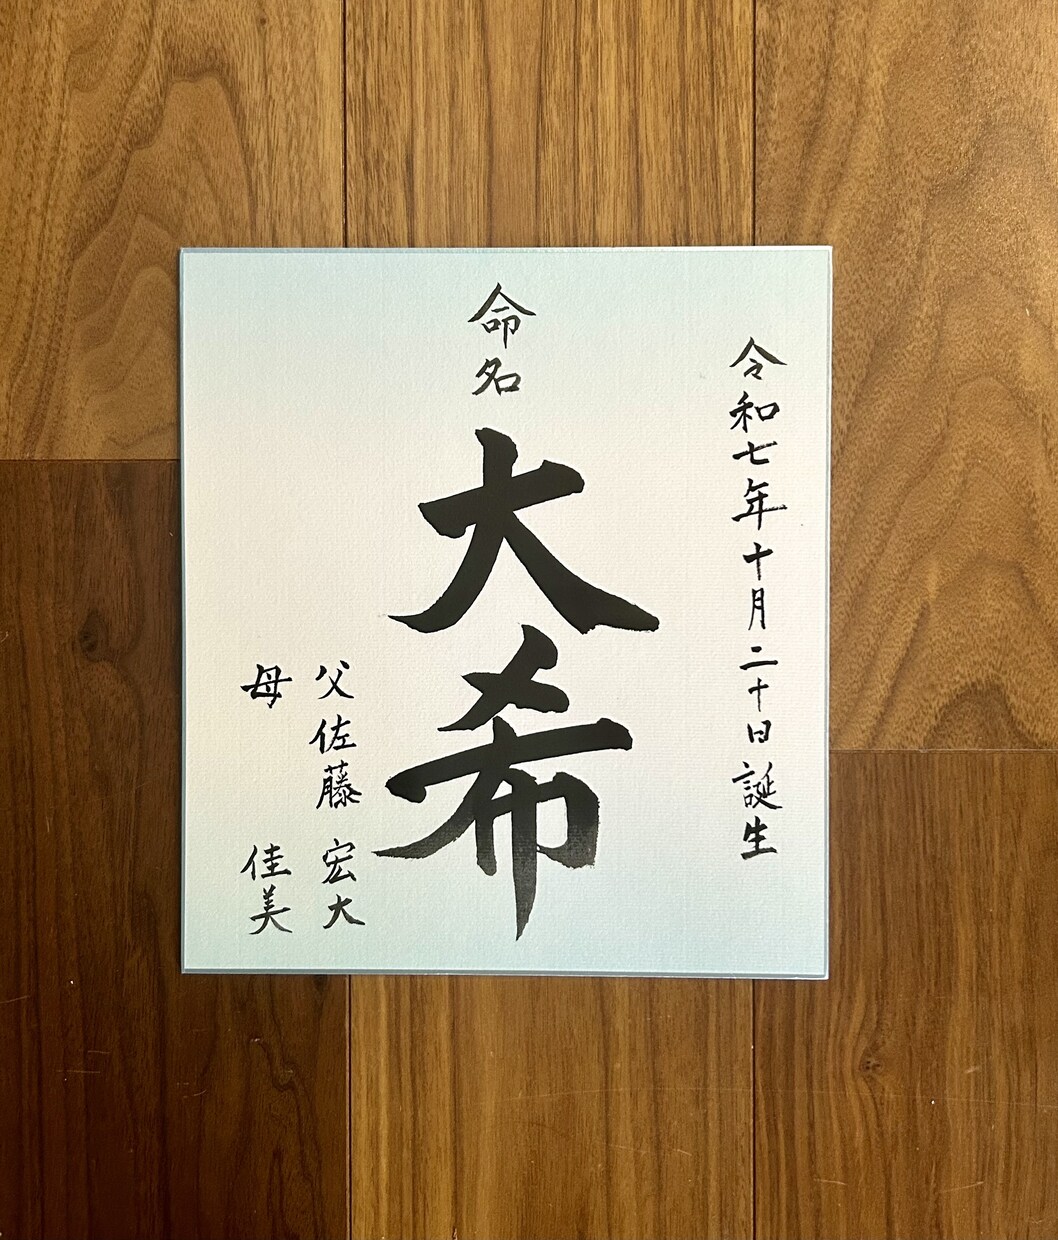 令和七年十月二十日誕生
命名
大希
父佐藤 宏大
母 佳美